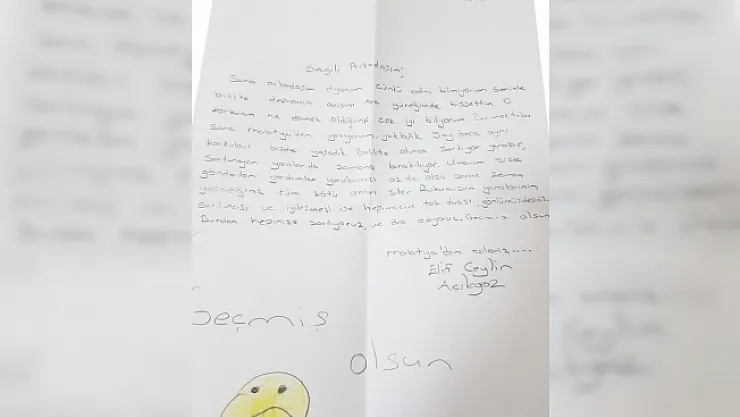 Sevgili Arkadaşım!
Sana arkadaşım diyorum Çünkü adını bilmiyorum seninle
birlikte depremin acısını yüreğimde hissettim O
korkunun ne demek olduğunu çok iyi biliyorum Bu mektubu
Sana malatya'dan yazıyorum, yaklaşık önce aynı
korkuları bizde yaşadık Birlikte olunca sarılıyor yaralar,
Sarılmayan yaralarda zamana bırakılıyor. Umarım size
gönderilen yardımlar yaralarınızı az da olsa sarar. zaman
yaşadığınız tüm kötü anıları siler Ruhunuzun yaralarının
sarılması ve iyileşmesi ise hepimizin tek duası, gönlümüzdesiniz.
Burdan hepinize sarılıyoruz, ve dua ediyoruz, Geçmiş olsun
malatya'dan
Elif Ceylin
Açıkgöz
Geçmiş
olsun